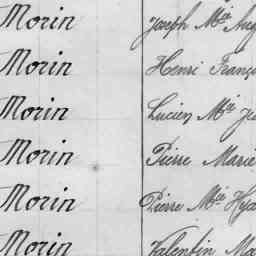 Morin Joseph Mie Aug
Morin Henri Franç
Morin Lucien Mie Je
Morin Pierre Marie
Morin Pierre Mie Hya
Morin Valentin Ma